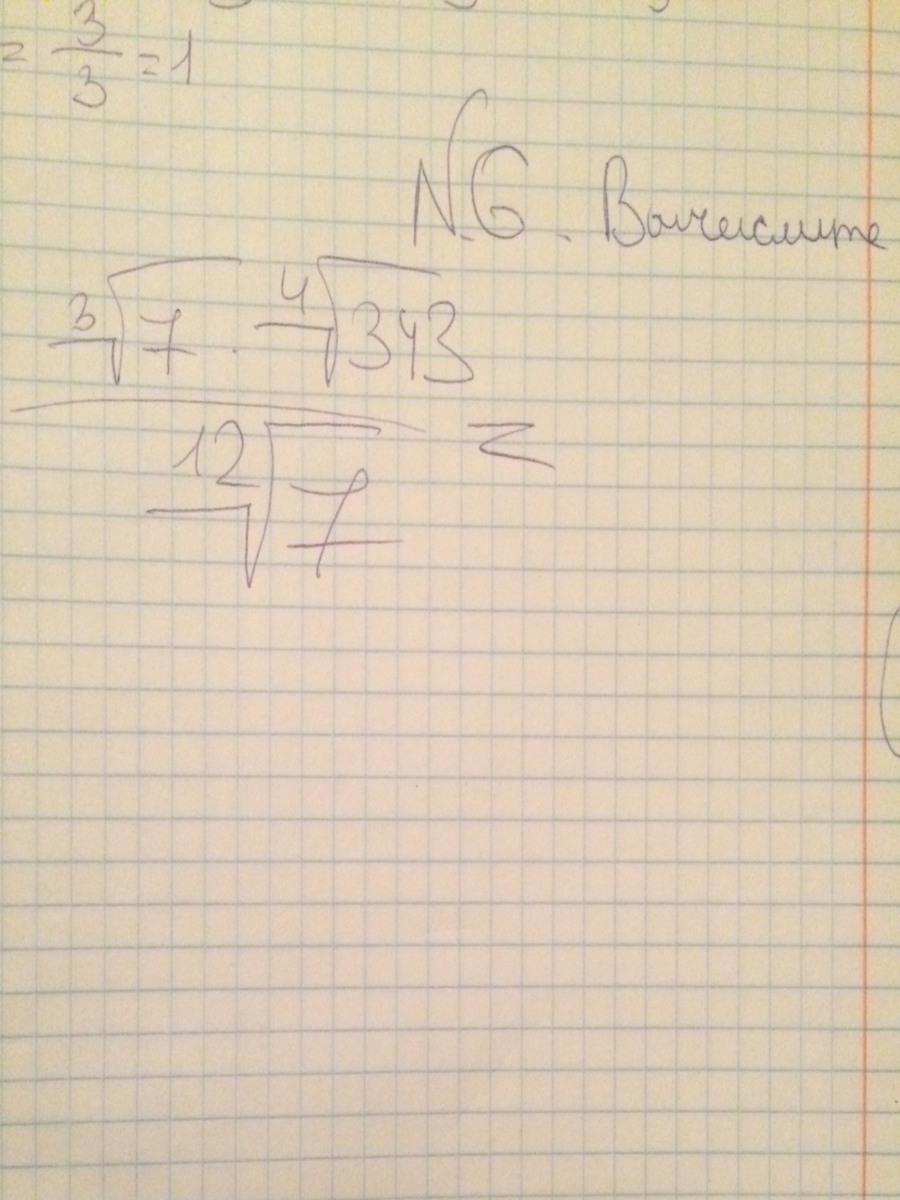 = 3/3 = 1
№6. Вычислите
∛7 · ∜343
12√7 =